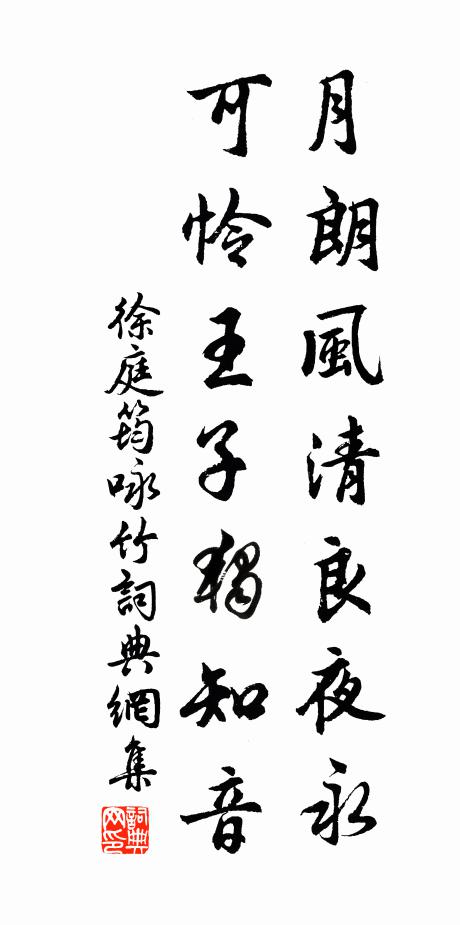 月朗風清良夜永
可怜王子獨知音
徐庭筠咏竹詞典網集
詞典網印